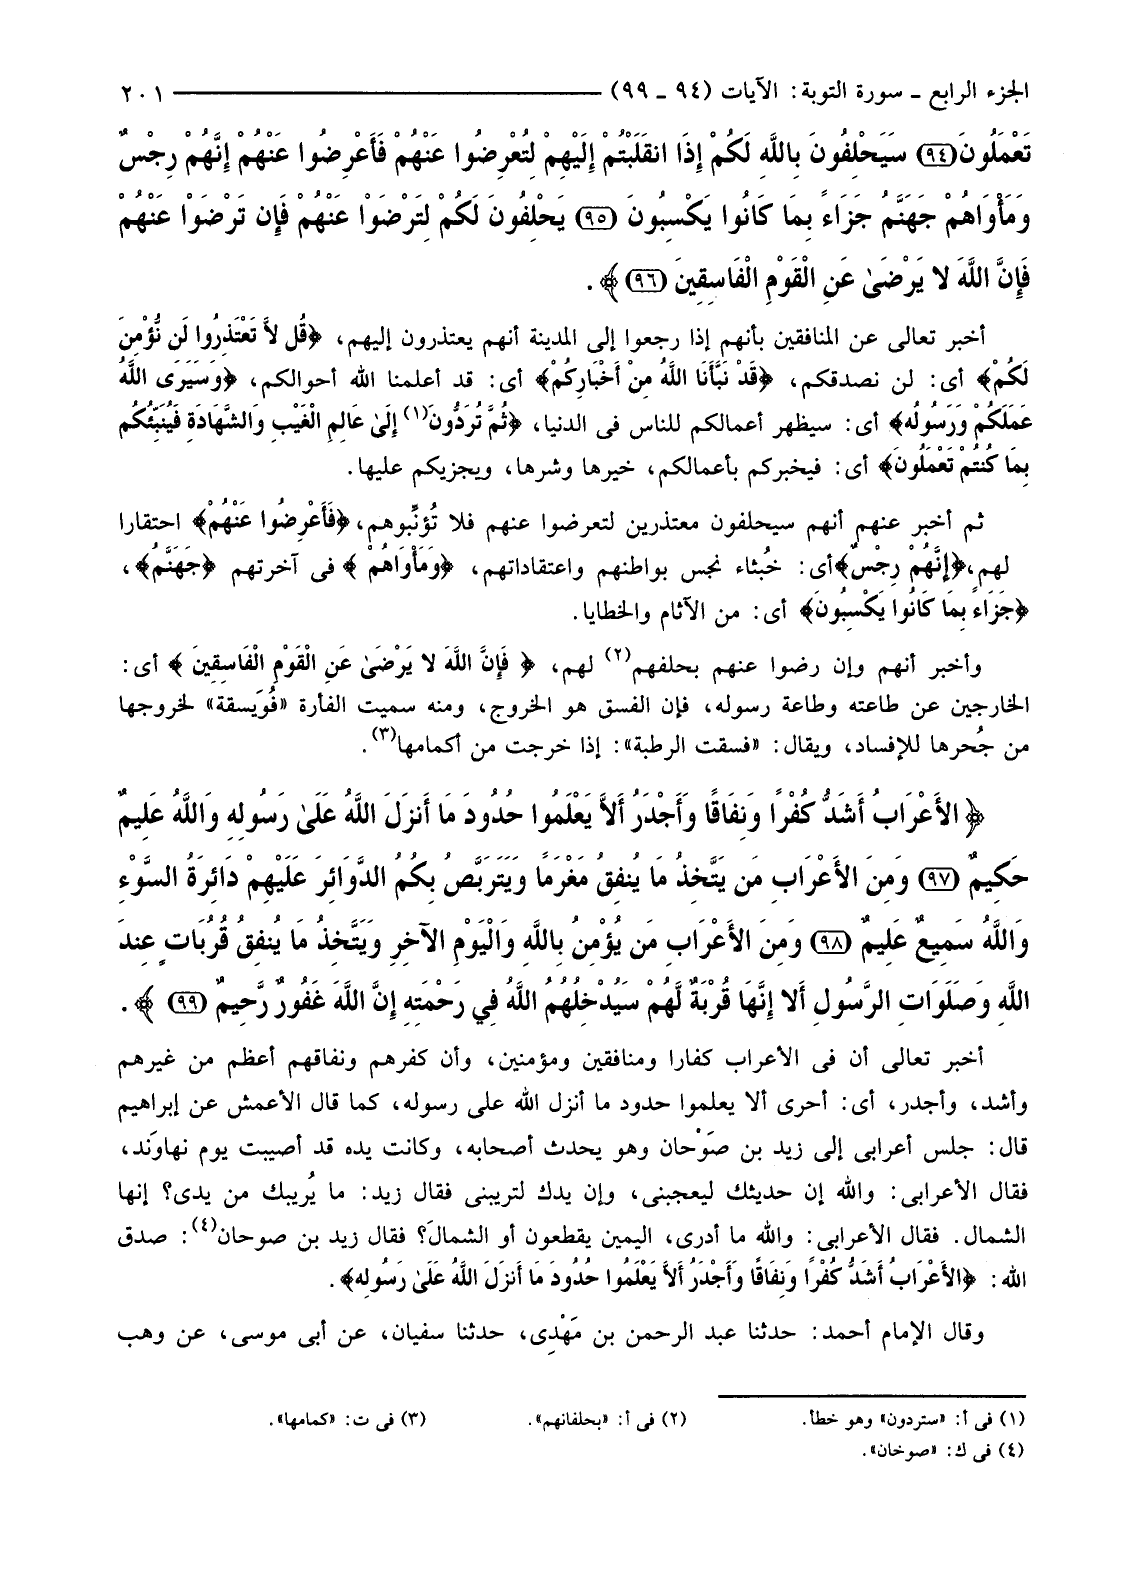 الجزء الرابع ـ سورة التوبة: الآيات (٩٤ ـ ٩٩) ٢٠١
تَعْمَلُونَ (٩٤) سَيَحْلِفُونَ بِاللَّهِ لَكُمْ إِذَا انقَلَبْتُمْ إِلَيْهِمْ لِتُعْرِضُوا عَنْهُمْ فَأَعْرِضُوا عَنْهُمْ إِنَّهُمْ رِجْسٌ
وَمَأْوَاهُمْ جَهَنَّمُ جَزَاءً بِمَا كَانُوا يَكْسِبُونَ (٩٥) يَحْلِفُونَ لَكُمْ لِتَرْضَوْا عَنْهُمْ فَإِن تَرْضَوْا عَنْهُمْ
فَإِنَّ اللَّهَ لا يَرْضَىٰ عَنِ الْقَوْمِ الْفَاسِقِينَ (٩٦) ﴾ .
أخبر تعالى عن المنافقين بأنهم إذا رجعوا إلى المدينة أنهم يعتذرون إليهم، ﴿قُل لاَّ تَعْتَذِرُوا لَن نُّؤْمِنَ
لَكُمْ﴾ أى: لن نصدقكم، ﴿قَدْ نَبَّأَنَا اللَّهُ مِنْ أَخْبَارِكُمْ﴾ أى: قد أعلمنا الله أحوالكم، ﴿وَسَيَرَى اللَّهُ
عَمَلَكُمْ وَرَسُولُه﴾ أى: سيظهر أعمالكم للناس فى الدنيا، ﴿ثُمَّ تُرَدُّونَ(١) إِلَىٰ عَالِمِ الْغَيْبِ وَالشَّهَادَةِ فَيُنَبِّئُكُم
بِمَا كُنتُمْ تَعْمَلُونَ﴾ أى: فيخبركم بأعمالكم، خيرها وشرها، ويجزيكم عليها.
ثم أخبر عنهم أنهم سيحلفون معتذرين لتعرضوا عنهم فلا تُؤَنِّبوهم، ﴿فَأَعْرِضُوا عَنْهُمْ﴾ احتقارا
لهم، ﴿إِنَّهُمْ رِجْسٌ﴾ أى: خُبثاء نجس بواطنهم واعتقاداتهم، ﴿وَمَأْوَاهُمْ ﴾ فى آخرتهم ﴿جَهَنَّمُ﴾،
﴿جَزَاءً بِمَا كَانُوا يَكْسِبُونَ﴾ أى: من الآثام والخطايا.
وأخبر أنهم وإن رضوا عنهم بحلفهم(٢) لهم، ﴿ فَإِنَّ اللَّهَ لا يَرْضَىٰ عَنِ الْقَوْمِ الْفَاسِقِينَ ﴾ أى:
الخارجين عن طاعته وطاعة رسوله، فإن الفسق هو الخروج، ومنه سميت الفأرة «فُوَيسقة» لخروجها
من جُحرها للإفساد، ويقال: «فسقت الرطبة»: إذا خرجت من أكمامها(٣).
﴿ الأَعْرَابُ أَشَدُّ كُفْرًا وَنِفَاقًا وَأَجْدَرُ أَلاَّ يَعْلَمُوا حُدُودَ مَا أَنزَلَ اللَّهُ عَلَىٰ رَسُولِهِ وَاللَّهُ عَلِيمٌ
حَكِيمٌ (٩٧) وَمِنَ الأَعْرَابِ مَن يَتَّخِذُ مَا يُنفِقُ مَغْرَمًا وَيَتَرَبَّصُ بِكُمُ الدَّوَائِرَ عَلَيْهِمْ دَائِرَةُ السَّوْءِ
وَاللَّهُ سَمِيعٌ عَلِيمٌ (٩٨) وَمِنَ الأَعْرَابِ مَن يُؤْمِنُ بِاللَّهِ وَالْيَوْمِ الآخِرِ وَيَتَّخِذُ مَا يُنفِقُ قُرُبَاتٍ عِندَ
اللَّهِ وَصَلَوَاتِ الرَّسُولِ أَلا إِنَّهَا قُرْبَةٌ لَّهُمْ سَيُدْخِلُهُمُ اللَّهُ فِي رَحْمَتِهِ إِنَّ اللَّهَ غَفُورٌ رَّحِيمٌ (٩٩) ﴾ .
أخبر تعالى أن فى الأعراب كفارا ومنافقين ومؤمنين، وأن كفرهم ونفاقهم أعظم من غيرهم
وأشد، وأجدر، أى: أحرى ألا يعلموا حدود ما أنزل الله على رسوله، كما قال الأعمش عن إبراهيم
قال: جلس أعرابى إلى زيد بن صَوْحان وهو يحدث أصحابه، وكانت يده قد أصيبت يوم نهاوَند،
فقال الأعرابى: والله إن حديثك ليعجبنى، وإن يدك لتريبنى فقال زيد: ما يُريبك من يدى؟ إنها
الشمال. فقال الأعرابى: والله ما أدرى، اليمين يقطعون أو الشمالَ؟ فقال زيد بن صوحان(٤): صدق
الله: ﴿الأَعْرَابُ أَشَدُّ كُفْرًا وَنِفَاقًا وَأَجْدَرُ أَلاَّ يَعْلَمُوا حُدُودَ مَا أَنزَلَ اللَّهُ عَلَىٰ رَسُولِه﴾.
وقال الإمام أحمد: حدثنا عبد الرحمن بن مَهْدِى، حدثنا سفيان، عن أبى موسى، عن وهب
(١) فى أ: «ستردون» وهو خطأ. (٢) فى أ: «بحلفانهم». (٣) فى ت: «كمامها».
(٤) فى ك: «صوخان».